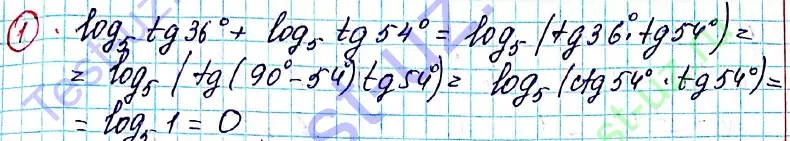 ① log₅ tg 36° + log₅ tg 54° = log₅ (tg 36° · tg 54°) =
= log₅ (tg (90° - 54) tg 54°) = log₅ (ctg 54° · tg 54°) =
= log₅ 1 = 0